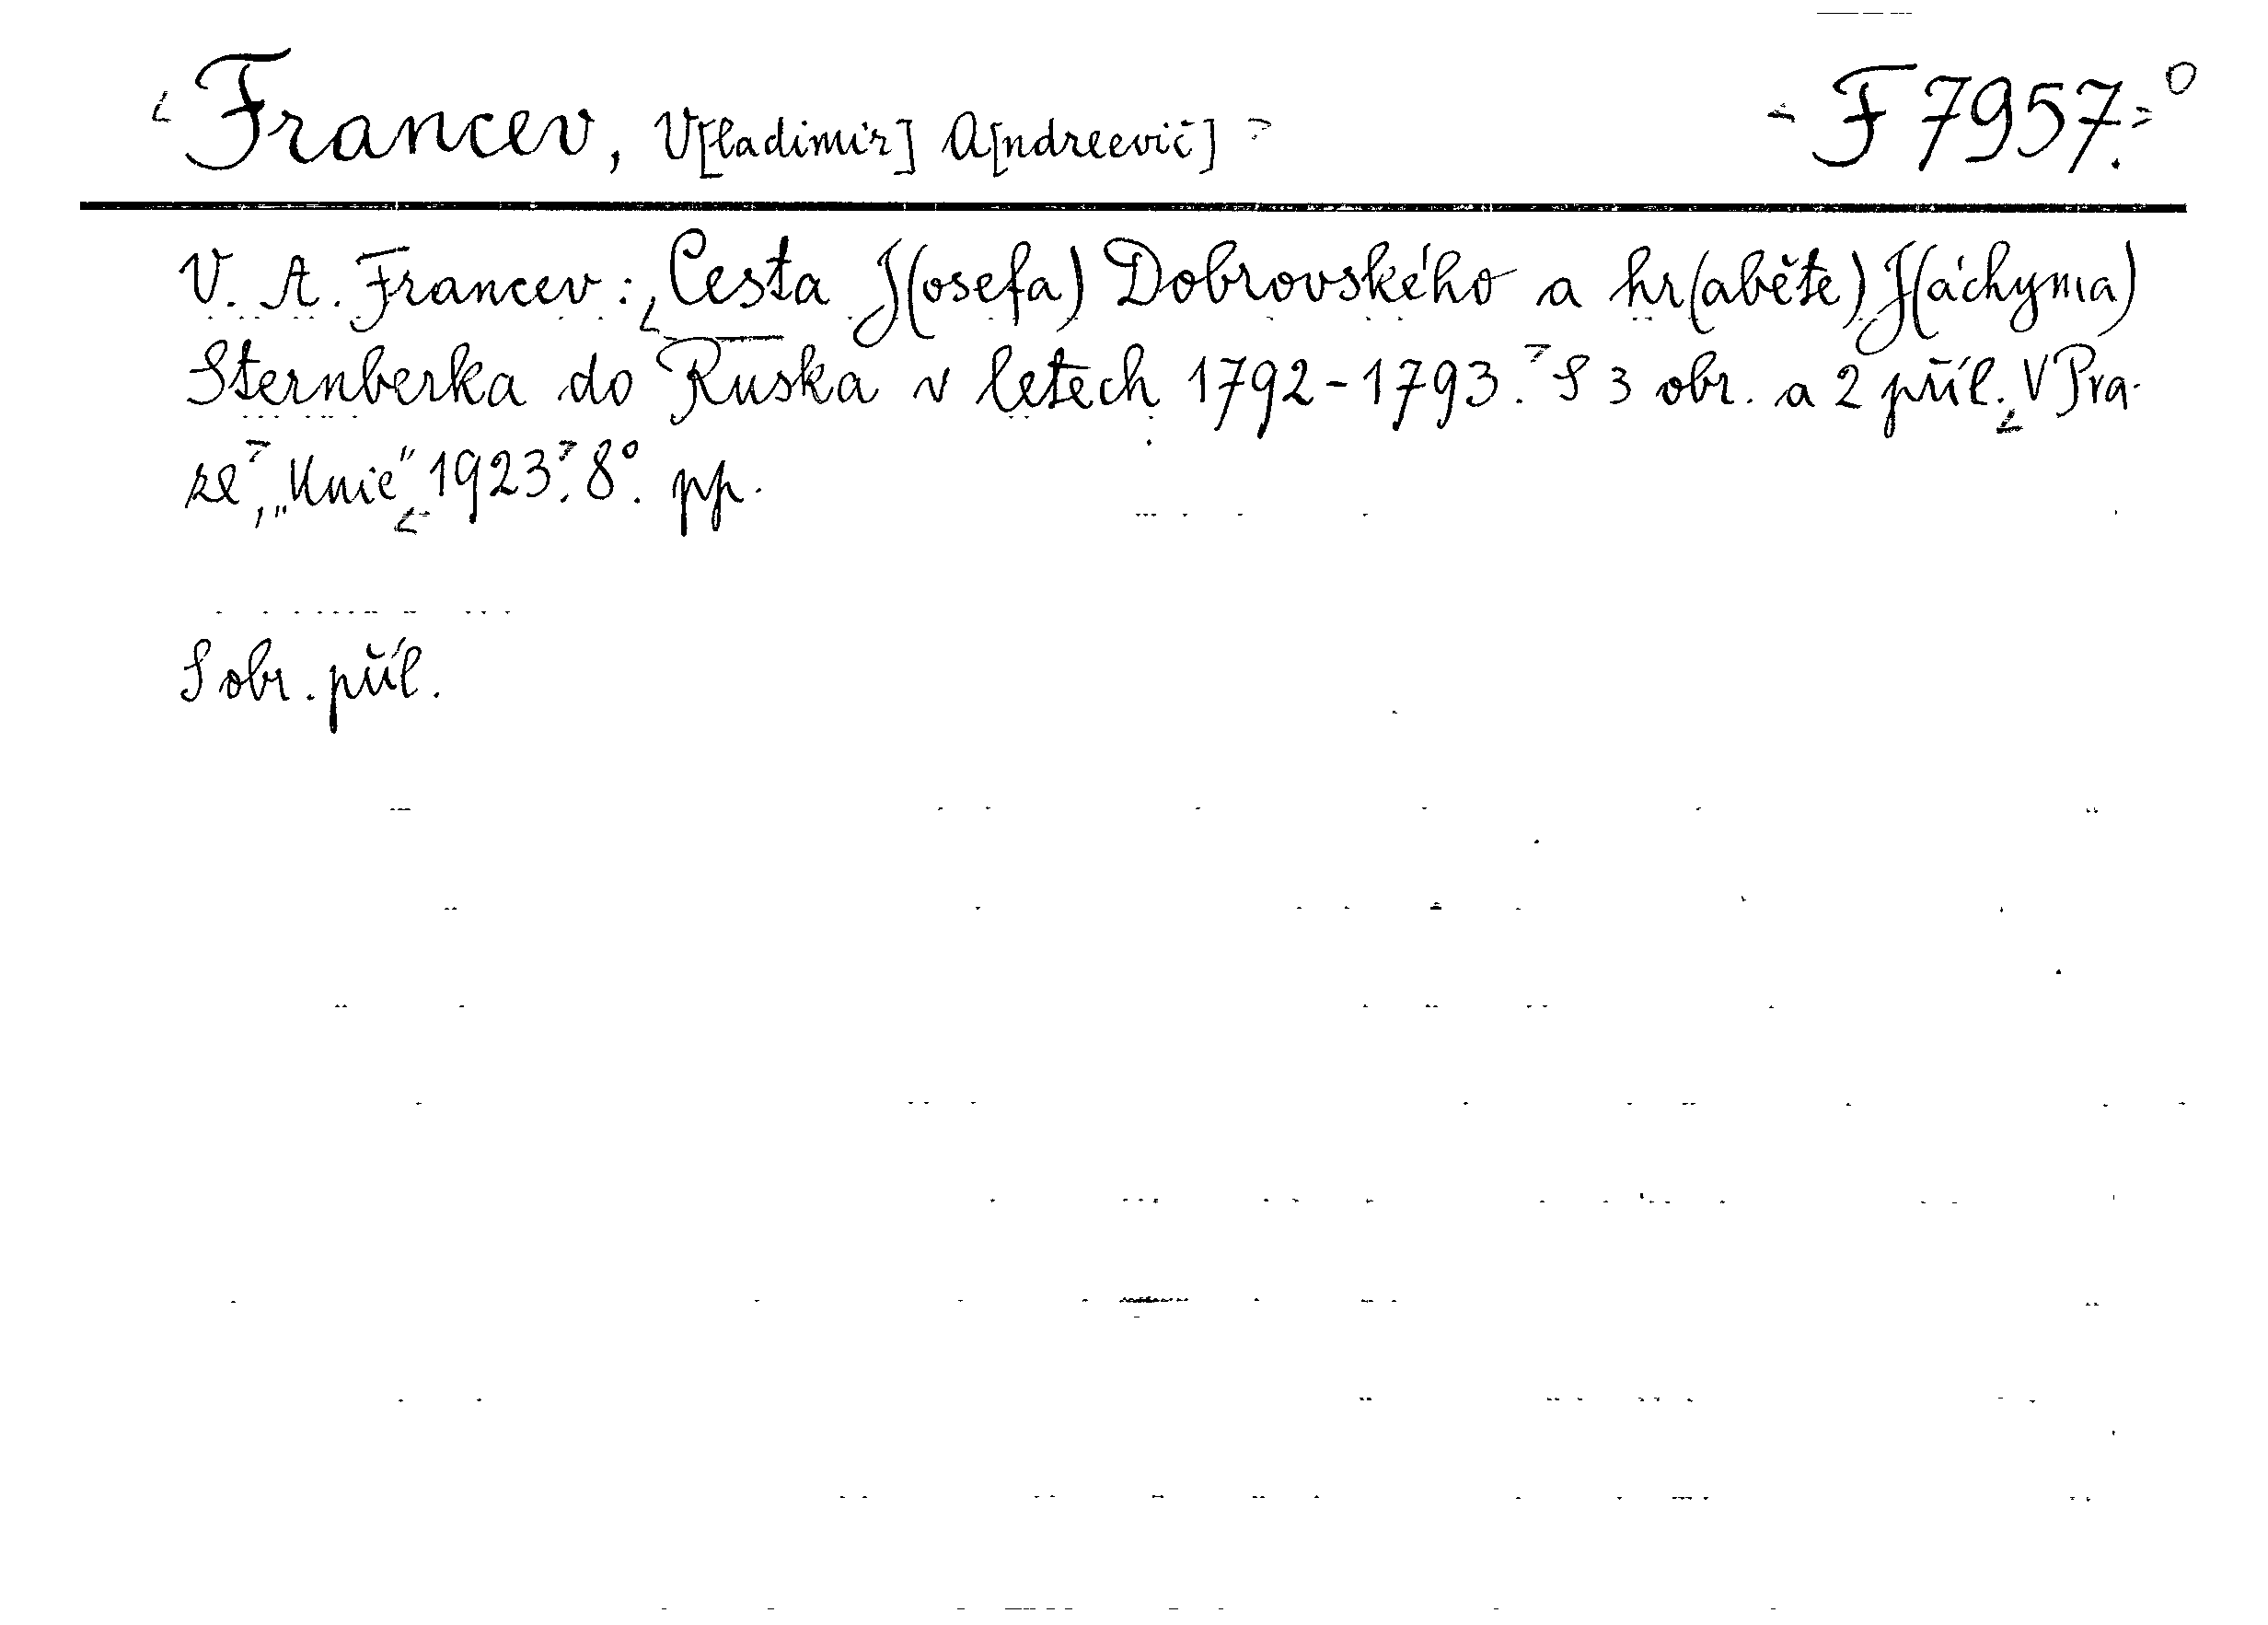 Francev, V[ladimir] A[ndreevič] F 7957.
V. A. Francev: Cesta J(osefa) Dobrovského a hr(aběte) J(áchyma)
Sternberka do Ruska v letech 1792-1793. S 3 obr. a 2 příl. V Pra-
ze, „Unie“ 1923. 8°. pp.
S obr. příl.